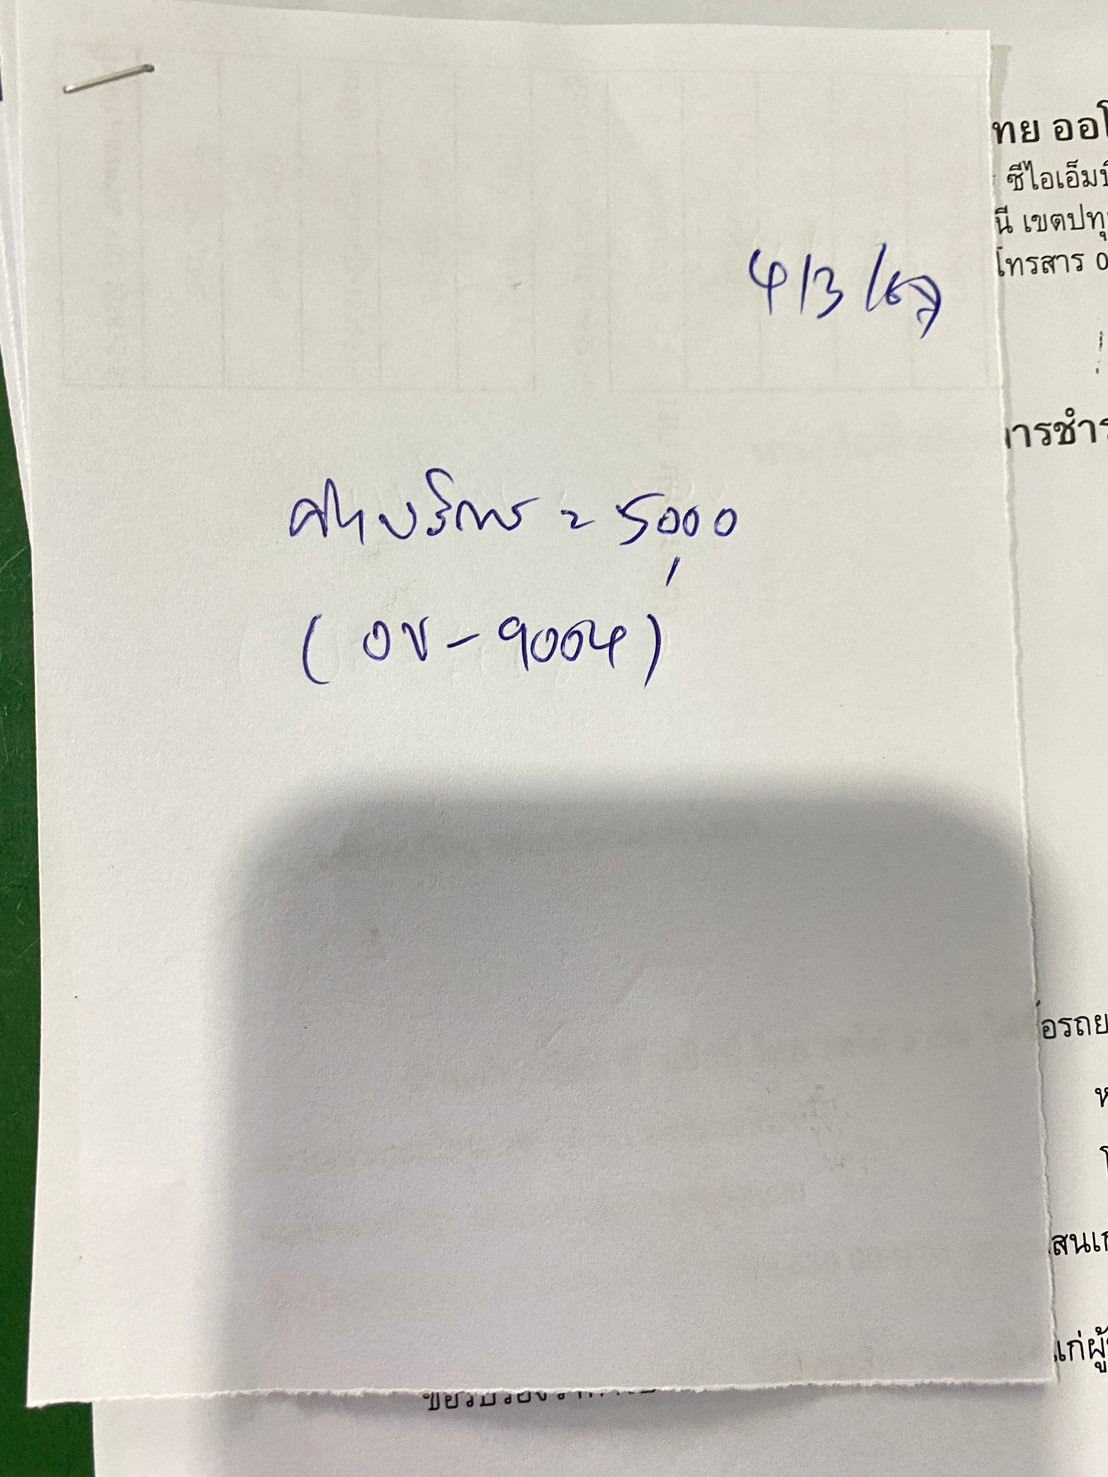 ทย ออโ
ซีไอเอ็มบี
นี เขตปทุ
โทรสาร 0
4/3/67
การชำร
ค่าบริการ = 5,000
(ขข-9004)
อรถย
ห
โ
สนเก
แก่ผู้